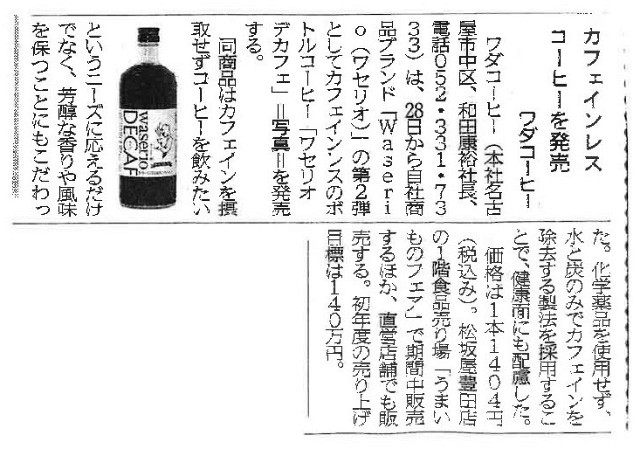 カフェインレス
コーヒーを発売
ワダコーヒー
ワダコーヒー（本社名古
屋市中区、和田康裕社長、
電話０５２・３３１・７３
３３）は、28日から自社商
品ブランド「Ｗａｓｅｒｉ
ｏ（ワセリオ）」の第２弾
としてカフェインレスのボ
トルコーヒー「ワセリオ
デカフェ」＝写真＝を発売
する。
同商品はカフェインを摂
取せずコーヒーを飲みたい
waserio
DECAF
というニーズに応えるだけ
でなく、芳醇な香りや風味
を保つことにもこだわっ
た。化学薬品を使用せず、
水と炭のみでカフェインを
除去する製法を採用するこ
とで、健康面にも配慮した。
価格は１本１４０４円
（税込み）。松坂屋豊田店
の１階食品売り場「うまい
ものフェア」で期間中販売
するほか、直営店舗でも販
売する。初年度の売り上げ
目標は１４０万円。